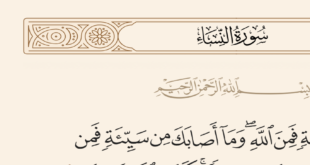 سُورَةُ النِّسَاءِ
بِسْمِ اللَّهِ الرَّحْمَٰنِ الرَّحِيمِ
فَمِنَ اللَّهِ ۖ وَمَا أَصَابَكَ مِن سَيِّئَةٍ فَمِن